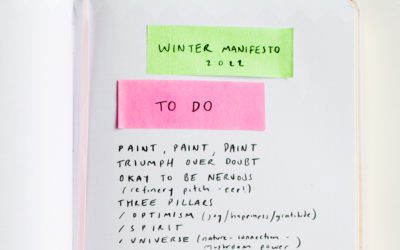 WINTER MANIFESTO
2022
TO DO
PAINT, PAINT, PAINT
TRIUMPH OVER DOUBT
OKAY TO BE NERVOUS
(refinery pitch - eeps!)
THREE PILLARS
/ OPTIMISM (joy/happiness/gratitude)
/ SPIRIT
/ UNIVERSE (nature - connection -
mushroom power )